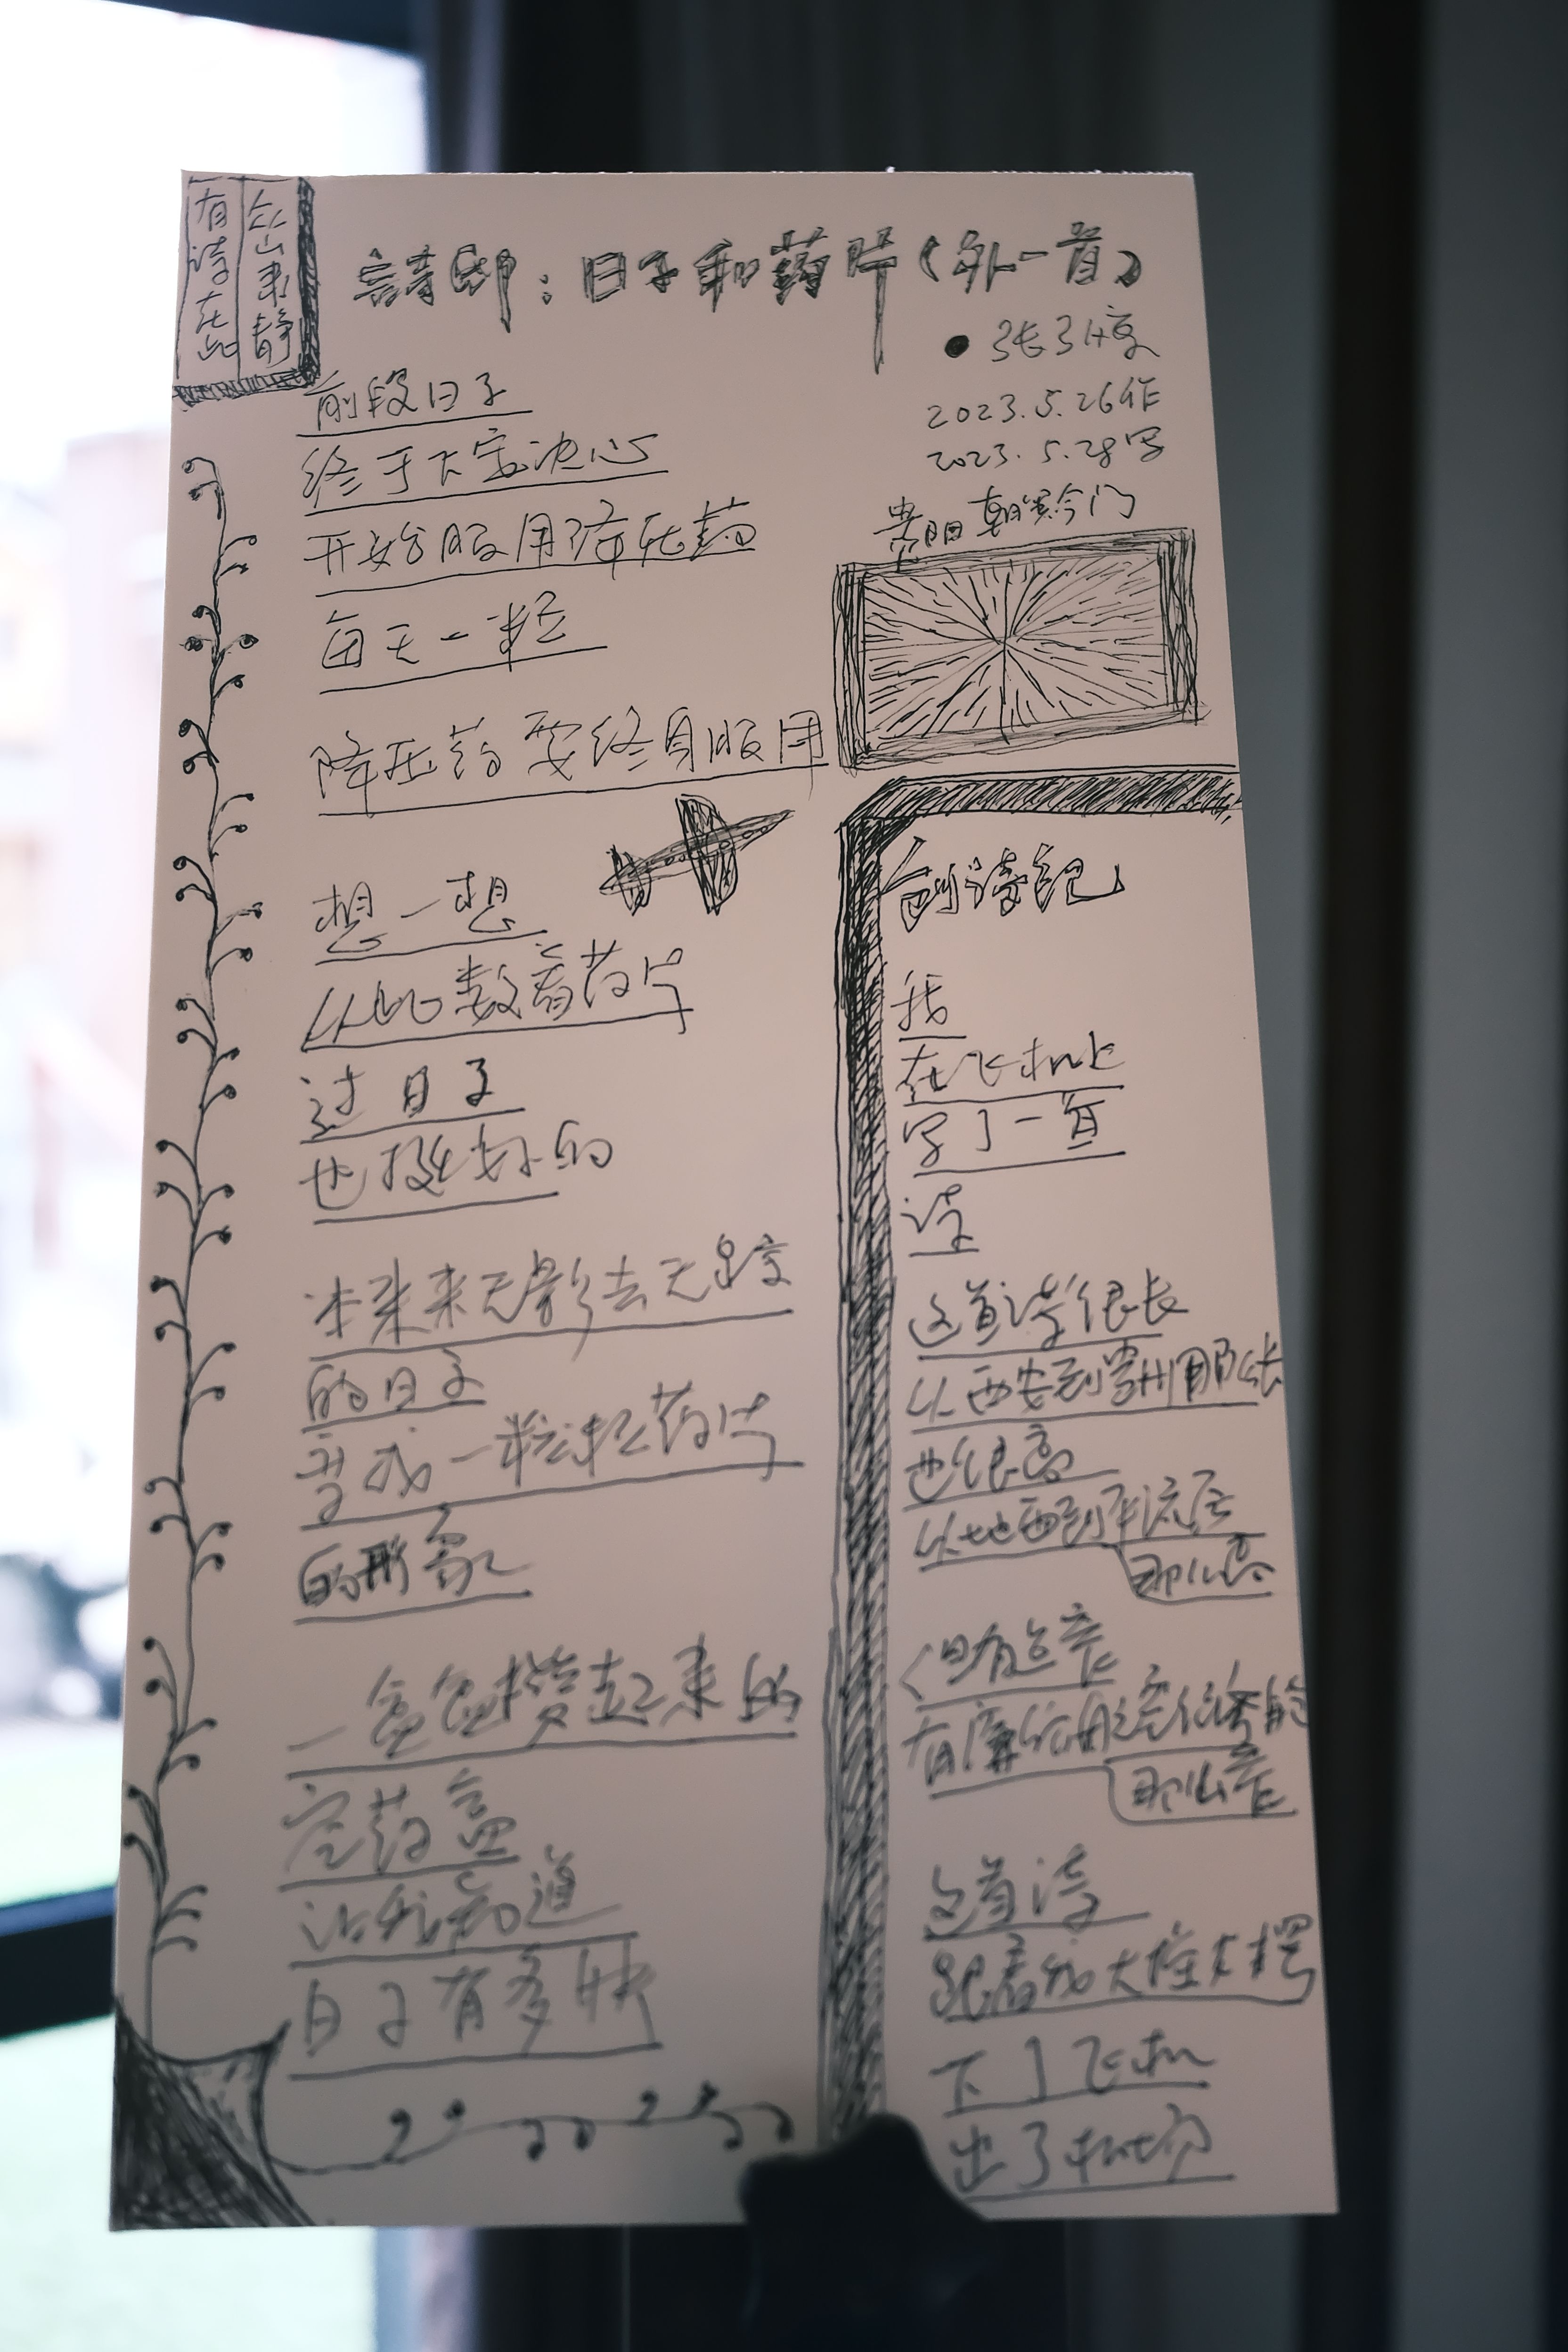 众山来静
有诗在此
詩邮：日子和药片（外一首）
2023.5.26作
2023.5.28写
贵阳朝黔门
前段日子
终于下定决心
开始服用降压药
每天一粒
降压药要终身服用
想一想
从此数着药片
过日子
也挺好的
本来来无影去无踪
的日子
变成一粒粒药片
的形象
一盒盒攒起来的
空药盒
让我知道
日子有多快
创诗纪
我
在飞机上
写了一首
诗
这首诗很长
从西安到贵州那么长
也很高
从地面到平流层
那么高
但有点窄
有廉价航空经济舱
那么窄
这首诗
跟着我大摇大摆
下了飞机
出了机场